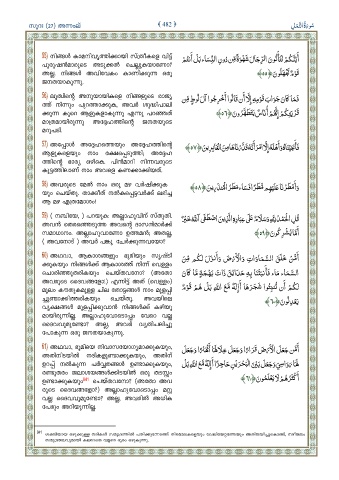 സൂറ (27) അന്നംല്
﴾ 482 ﴿
سورة النمل
55) നിങ്ങൾ കാമനിവൃത്തിക്കായി സ്ത്രീകളെ വിട്ട്
പുരുഷൻമാരുടെ അടുക്കൽ ചെല്ലുകയാണോ?
അല്ല. നിങ്ങൾ അവിവേകം കാണിക്കുന്ന ഒരു
ജനതയാകുന്നു.
أَئِنَّكُمْ لَتَأْتُونَ الرِّجَالَ شَهْوَةً مِّن دُونِ النِّسَاءِ بَلْ أَنتُمْ
قَوْمٌ تَجْهَلُونَ ﴿٥٥﴾
56) ലൂത്വിന്റെ അനുയായികളെ നിങ്ങളുടെ രാജ്യ
ത്ത് നിന്നും പുറത്താക്കുക, അവർ ശുദ്ധിപാലി
ക്കുന്ന കുറെ ആളുകളാകുന്നു എന്നു പറഞ്ഞത്
മാത്രമായിരുന്നു അദ്ദേഹത്തിന്റെ ജനതയുടെ
മറുപടി.
فَمَا كَانَ جَوَابَ قَوْمِهِ إِلَّا أَن قَالُوا أَخْرِجُوا آلَ لُوطٍ مِّن
قَرْيَتِكُمْ إِنَّهُمْ أُنَاسٌ يَتَطَهَّرُونَ ﴿٥٦﴾
57) അപ്പോൾ അദ്ദേഹത്തെയും അദ്ദേഹത്തിന്റെ
ആളുകളെയും നാം രക്ഷപ്പെടുത്തി, അദ്ദേഹ
ത്തിന്റെ ഭാര്യ ഒഴികെ. പിൻമാറി നിന്നവരുടെ
കൂട്ടത്തിലാണ് നാം അവളെ കണക്കാക്കിയത്.
فَأَنجَيْنَاهُ وَأَهْلَهُ إِلَّا امْرَأَتَهُ قَدَّرْنَاهَا مِنَ الْغَابِرِينَ ﴿٥٧﴾
58) അവരുടെ മേൽ നാം ഒരു മഴ വർഷിക്കുക
യും ചെയ്തു. താക്കീത് നൽകപ്പെട്ടവർക്ക് ലഭിച്ച
ആ മഴ എത്രമോശം!
وَأَمْطَرْنَا عَلَيْهِم مَّطَرًا فَسَاءَ مَطَرُ الْمُنذَرِينَ ﴿٥٨﴾
59) ( നബിയേ, ) പറയുക: അല്ലാഹുവിന് സ്തുതി.
അവൻ തെരഞ്ഞെടുത്ത അവന്റെ ദാസൻമാർക്ക്
സമാധാനം. അല്ലാഹുവാണോ ഉത്തമൻ; അതല്ല,
( അവനോട് ) അവർ പങ്കു ചേർക്കുന്നവയോ?
قُلِ الْحَمْدُ لِلَّهِ وَسَلَامٌ عَلَىٰ عِبَادِهِ الَّذِينَ اصْطَفَىٰ آللَّهُ خَيْرٌ
أَمَّا يُشْرِكُونَ ﴿٥٩﴾
60) അഥവാ, ആകാശങ്ങളും ഭൂമിയും സൃഷ്ടി
ക്കുകയും നിങ്ങൾക്ക് ആകാശത്ത് നിന്ന് വെള്ളം
ചൊരിഞ്ഞുതരികയും ചെയ്തവനോ? (അതോ
അവരുടെ ദൈവങ്ങളോ) എന്നിട്ട് അത് (വെള്ളം)
മൂലം കൗതുകമുള്ള ചില തോട്ടങ്ങൾ നാം മുളപ്പി
ച്ചുണ്ടാക്കിത്തരികയും ചെയ്തു. അവയിലെ
വൃക്ഷങ്ങൾ മുളപ്പിക്കുവാൻ നിങ്ങൾക്ക് കഴിയു
മായിരുന്നില്ല. അല്ലാഹുവോടൊപ്പം വേറെ വല്ല
ദൈവവുമുണ്ടോ? അല്ല, അവർ വ്യതിചലിച്ചു
പോകുന്ന ഒരു ജനതയാകുന്നു.
أَمَّنْ خَلَقَ السَّمَاوَاتِ وَالْأَرْضَ وَأَنزَلَ لَكُم مِّنَ
السَّمَاءِ مَاءً فَأَنبَتْنَا بِهِ حَدَائِقَ ذَاتَ بَهْجَةٍ مَّا كَانَ
لَكُمْ أَن تُنبِتُوا شَجَرَهَا أَإِلَٰهٌ مَّعَ اللَّهِ بَلْ هُمْ قَوْمٌ
يَعْدِلُونَ ﴿٦٠﴾
61) അഥവാ, ഭൂമിയെ നിവാസയോഗ്യമാക്കുകയും,
അതിനിടയിൽ നദികളുണ്ടാക്കുകയും, അതിന്
ഉറപ്പ് നൽകുന്ന പർവ്വതങ്ങൾ ഉണ്ടാക്കുകയും,
രണ്ടുതരം ജലാശയങ്ങൾക്കിടയിൽ ഒരു തടസ്സം
ഉണ്ടാക്കുകയും ചെയ്തവനോ? (അതോ അവ
രുടെ ദൈവങ്ങളോ?) അല്ലാഹുവോടൊപ്പം മറ്റു
വല്ല ദൈവവുമുണ്ടോ? അല്ല, അവരിൽ അധിക
പേരും അറിയുന്നില്ല.
أَمَّن جَعَلَ الْأَرْضَ قَرَارًا وَجَعَلَ خِلَالَهَا أَنْهَارًا وَجَعَلَ
لَهَا رَوَاسِيَ وَجَعَلَ بَيْنَ الْبَحْرَيْنِ حَاجِزًا أَإِلَٰهٌ مَّعَ اللَّهِ بَلْ
أَكْثَرُهُمْ لَا يَعْلَمُونَ ﴿٦١﴾